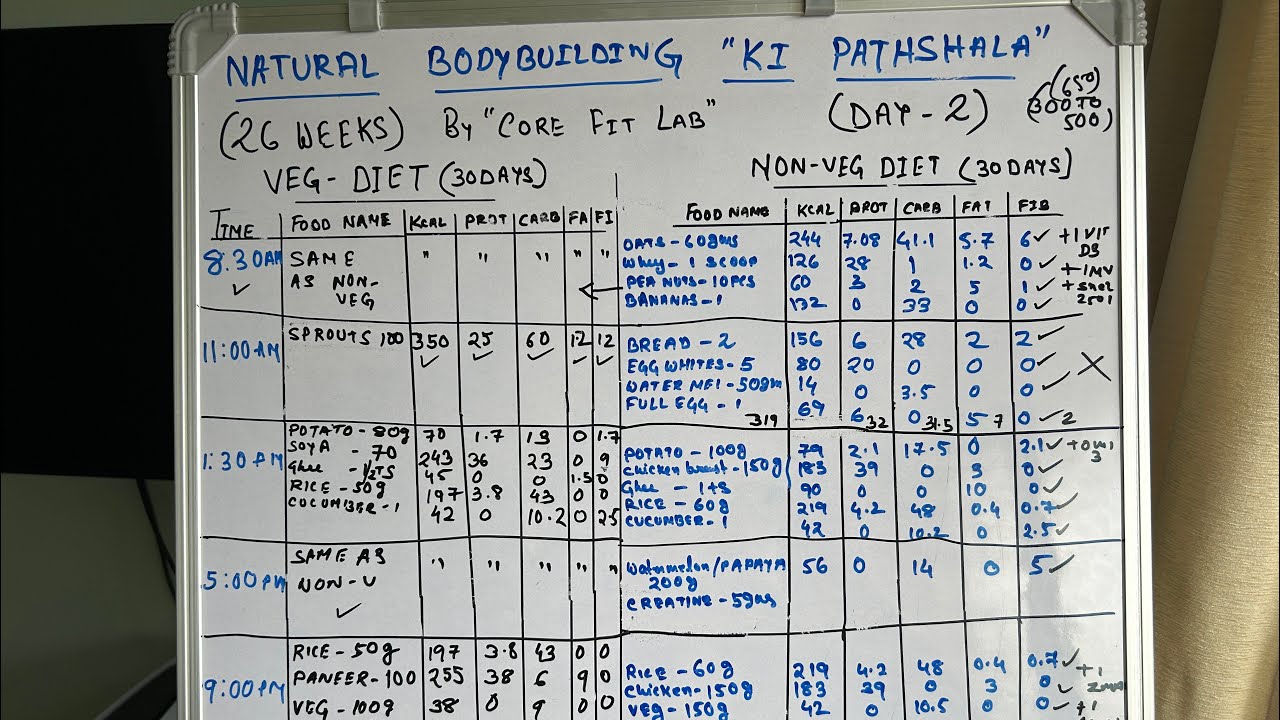 NATURAL BODYBUILDING "KI PATHSHALA"
(26 WEEKS) BY "CORE FIT LAB" (DAY - 2) (650) (300 TO 500)
VEG - DIET (30 DAYS) NON-VEG DIET (30 DAYS]
TIME FOOD NAME KCAL PROT CARB FA FI FOOD NAME KCAL PROT CARB FAT FIB
8.30 AM ✓ SAME AS NON-VEG " " " " "
OATS - 60gms 244 7.08 41.1 5.7 6 ✓ +1 VIT D3
Whey - 1 SCOOP 126 28 1 1.2 0 ✓ +1MV
PEANUTS - 10 PCS 60 3 2 5 1 ✓
BANANAS - 1 132 0 33 0 0 ✓
11:00 AM SPROUTS 100 350 25 60 12 12
✓ ✓ ✓ ✓ ✓
BREAD - 2 156 6 28 2 2 ✓
EGG WHITES - 5 80 20 0 0 0 ✓ X
WATER MEl - 50gm 14 0 3.5 0 0 ✓
FULL EGG - 1 69 6 0 5 0 ✓
319 32 31.5 7 2
1:30 PM POTATO - 80g 70 1.7 13 0 1.7
SOYA - 70 243 36 23 0 9
Ghee - 1/2TS 45 0 0 1.5 0
RICE - 50g 197 3.8 43 0 0
CUCUMBER - 1 42 0 10.2 0 25
POTATO - 100g 79 2.1 17.5 0 2.1 ✓
Chicken breast - 150g 183 39 0 3 0 ✓
Ghee - 1 tS 90 0 0 10 0 ✓
RICE - 60g 219 4.2 48 0.4 0.7 ✓
CUCUMBER - 1 42 0 10.2 0 2.5 ✓
5:00 PM SAME AS NON-V ✓ " " " " "
Watermelon/PAPAYA 200g 56 0 14 0 5 ✓
CREATINE - 5gms
9:00 PM RICE - 50g 197 3.8 43 0 0
PANEER - 100 255 38 6 9 0
VEG - 100g 38 0 9 0 0
RICE - 60g 219 4.2 48 0.4 0.7 ✓ +1
Chicken - 150g 183 39 0 3 0 ✓
Veg - 150g 42 0 10.5 0 0 ✓ +1